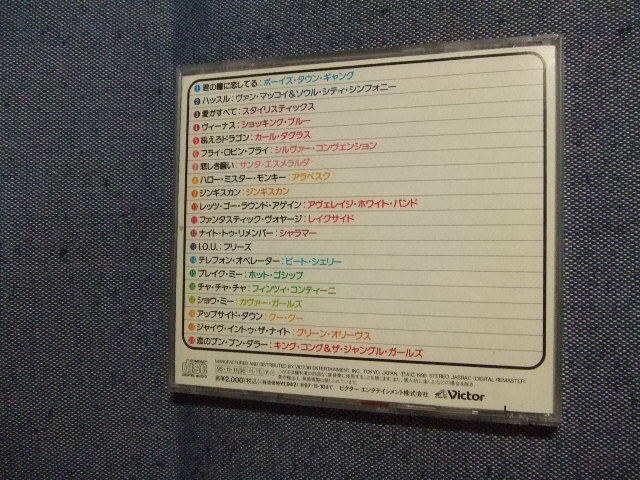 1 君の瞳に恋してる：ボーイズ・タウン・ギャング
2 ハッスル：ヴァン・マッコイ&ソウル・シティ・シンフォニー
3 愛がすべて：スタイリスティックス
4 ヴィーナス：ショッキング・ブルー
5 吼えろドラゴン：カール・ダグラス
6 フライ・ロビン・フライ：シルヴァー・コンヴェンション
7 悲しき願い：サンタ・エスメラルダ
8 ハロー・ミスター・モンキー：アラベスク
9 ジンギスカン：ジンギスカン
10 レッツ・ゴー・ラウンド・アゲイン：アヴェレイジ・ホワイト・バンド
11 ファンタスティック・ヴォヤージ：レイクサイド
12 ナイト・トゥ・リメンバー：シャラマー
13 I.O.U.：フリーズ
14 テレフォン・オペレーター：ピート・シェリー
15 ブレイク・ミー：ホット・ゴシップ
16 チャ・チャ・チャ：フィンツィ・コンティーニ
17 ショウ・ミー：カヴァー・ガールズ
18 アップサイド・ダウン：クー・クー
19 ジャイヴ・イントゥ・ザ・ナイト：グリーン・オリーヴス
20 恋のブン・ブン・ダラー：キング・コング&ザ・ジャングル・ガールズ
COMPACT disc DIGITAL AUDIO
MANUFACTURED AND DISTRIBUTED BY VICTOR ENTERTAINMENT, INC. TOKYO, JAPAN. STEREO JASRAC (DIGITAL REMASTER)
¥2,000(税込)(税抜価格¥1,942)
ビクターエンタテインメント株式会社
Victor